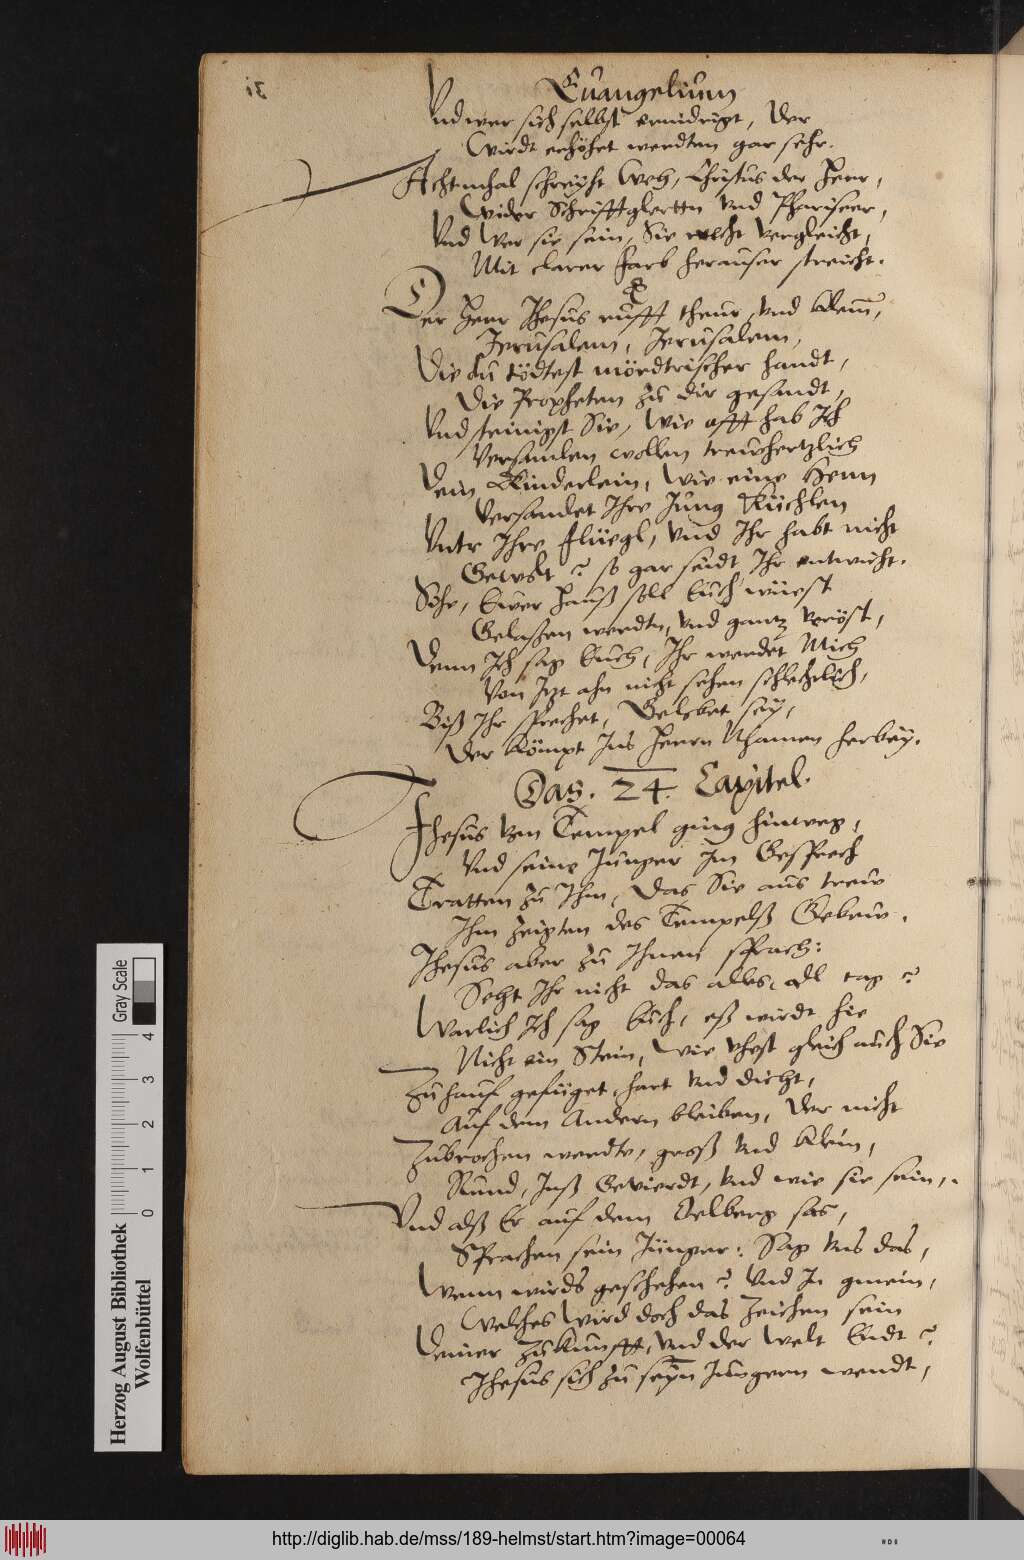 Euangelium
Vnd wer sich selbst ernidrigt, Der
Wirdt erhöhet werdten gar sehr.
Achtmhal schreyht Weh, Christus der Herr,
Wider Schrifftglertn vnd Phariseer,
Vnd Wer sie sein, Sie recht vergleicht,
Mit clarer farb herausser streicht.
Der Herr Jhesus rufft theur, vnd klemm,
Jerusalem, Jerusalem,
Die du tödtest mördtrischer handt,
Die Propheten zu dir gesandt,
Vnd steinigst Sie, Wie offt hab Ich
Versamlen wollen treuhertzlich
Dein Kinderlein, Wie eine Henn
Versamlet Ihre Jung Küchlen
Vntr Ihre flüegl, vnd Ihr habt nicht
Gewolt? so gar seidt Ihr entwicht.
Sehe, Ewer Hauß soll Euch wüest
Gelaßen werdtn, vnd gantz veröst,
Denn Ich sag Euch, Ihr werdet Mich
Von Jtzt ahn nicht sehen schlechtlich,
Biß Ihr sprechet, Gelobet sey,
Der kömpt Ins Herrn Nhamen herbey.
Das. 24. Capitel.
Jhesus vom Tempel ging hinweg,
Vnd seine Junger Im Gesprech
Tratten zu Ihm, Das Sie aus treue
Ihm zeigten des Tempelß Gebew.
Jhesus aber zu Ihnen sprach:
Seht Ihr nicht das alles, all tag?
Warlich Ich sag Euch, eß wirdt hie
Nicht ein Stein, wie vhest gleich auch Sie
Zuhauf gefüget, hart vnd dicht,
Auf dem Andern bleiben, Der nicht
Zubrochen werdte, groß vnd klein,
Rund, Inß Gevierdt, vnd wie sie sein,
Vnd alß Er auf dem Oelberg sas,
Sprachen sein Jünger: Sag vns das,
Wenn wirds geschehen? Vnd In gmein,
Welches Wird doch das Zeichen sein
Deiner Zukunfft, vnd der Welt Endt?
Jhesus sich zu seyn Jungern wendt,
Gray Scale
0 1 2 3 4
Herzog August Bibliothek
Wolfenbüttel
http://diglib.hab.de/mss/189-helmst/start.htm?image=00064